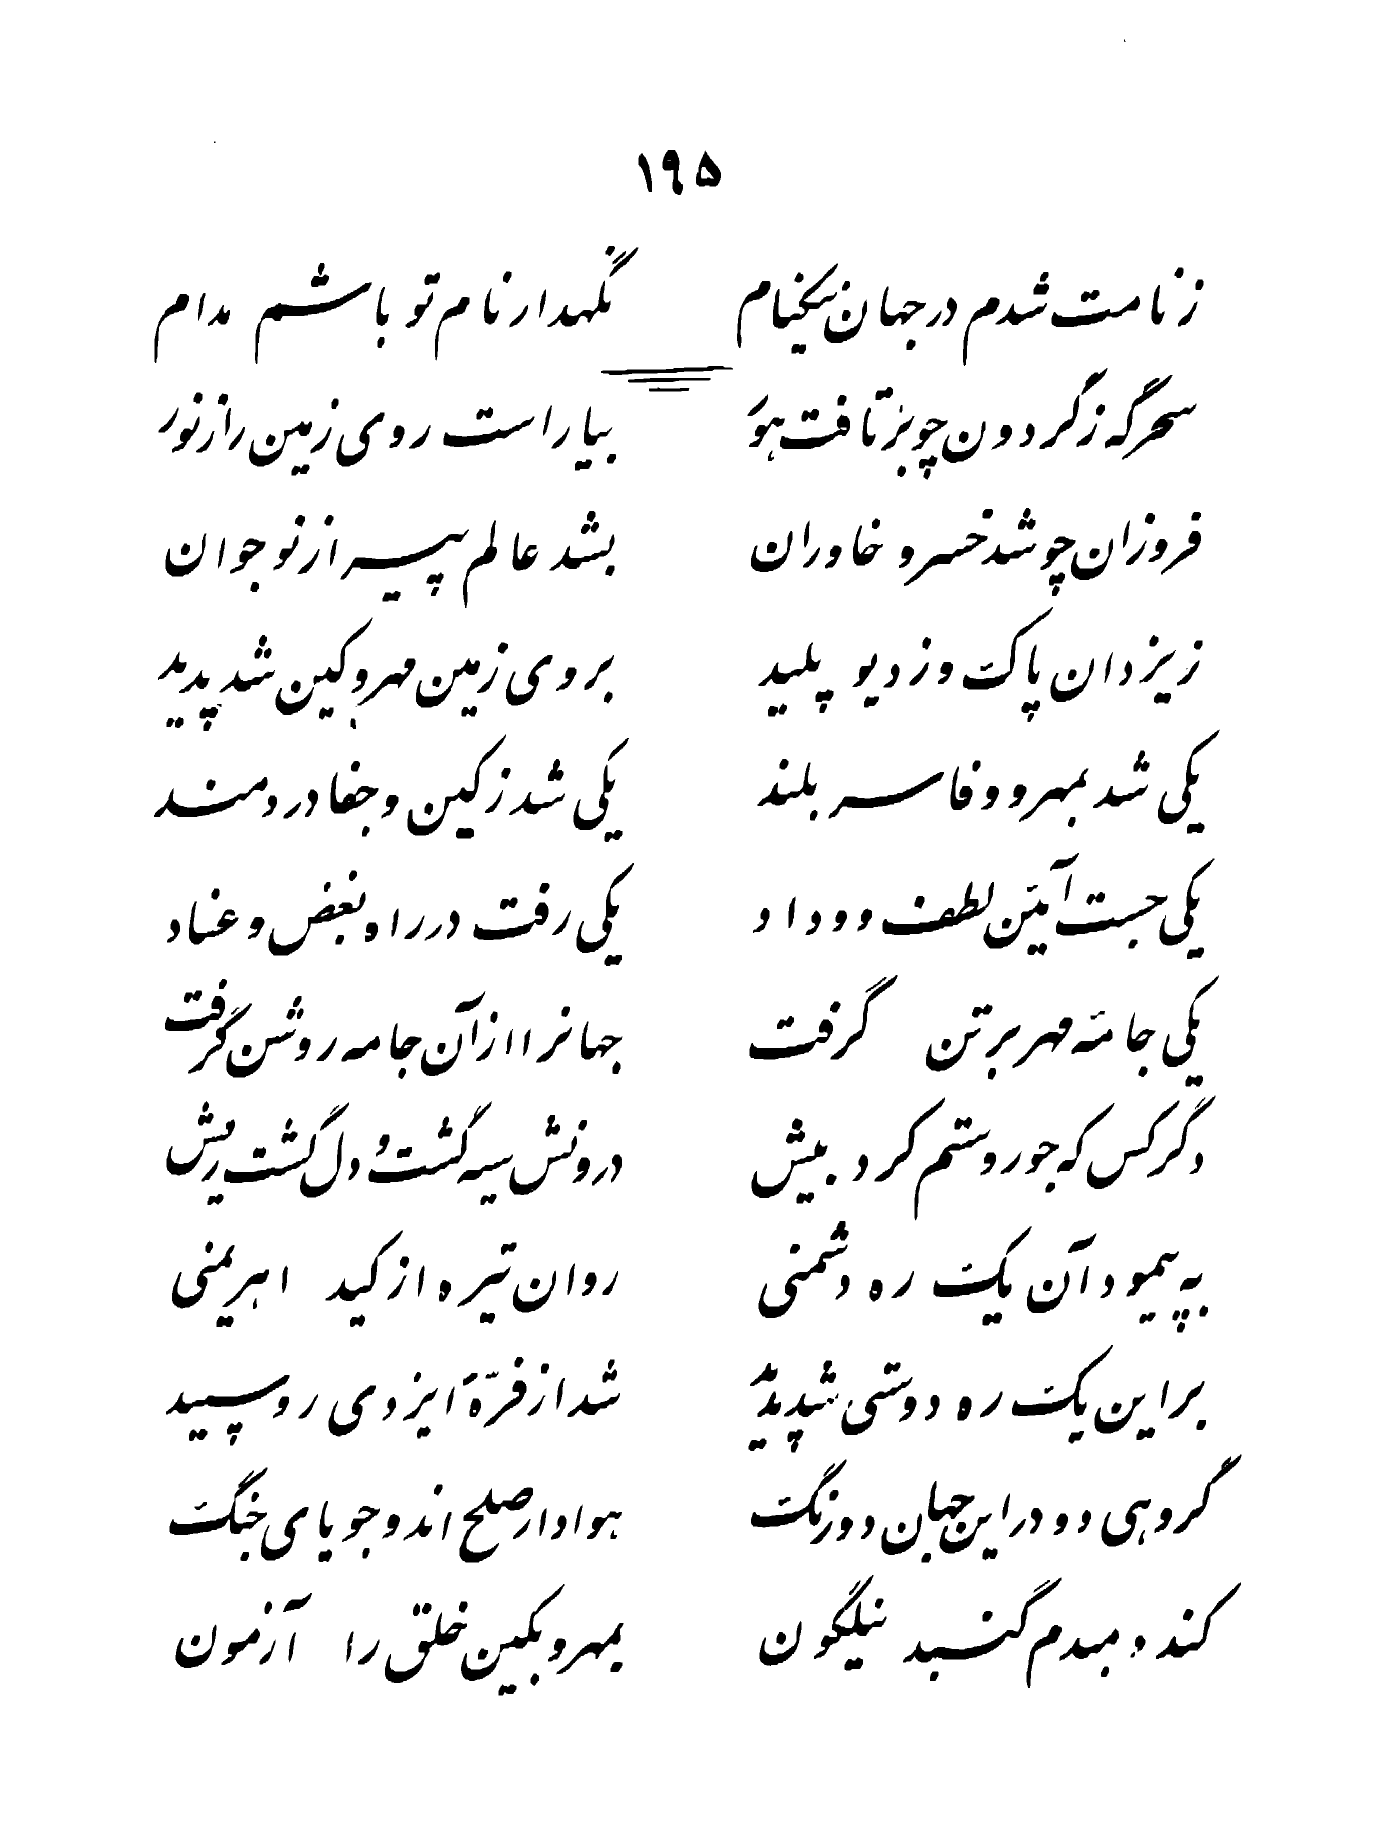 ۱۹۵
ز نامت شدم در جهان نیکنام نگهدار نام تو باشم مدام
سحرگه ز گردون چو بر تافت هور بیاراست روی زمین را ز نور
فروزان چو شد خسرو خاوران بشد عالم پیر از نو جوان
ز یزدان پاک و ز دیو پلید بروی زمین مهر و کین شد پدید
یکی شد بمهر و وفا سر بلند یکی شد ز کین و جفا دردمند
یکی جست آئین لطف و وداد یکی رفت در راه بغض و عناد
یکی جامهٔ مهر بر تن گرفت جهانرا از آن جامه روشن گرفت
دگر کس که جور و ستم کرد بیش درونش سیه گشت و دل گشت ریش
به پیمود آن یک ره دشمنی روان تیره از کید اهریمنی
بر این یک ره دوستی شد پدید شد از فرّهٔ ایزدی رو سپید
گروهی دو در این جهان دو رنگ هوادار صلح اند و جویای جنگ
کند دمبدم گنبد نیلگون بمهر و بکین خلق را آزمون